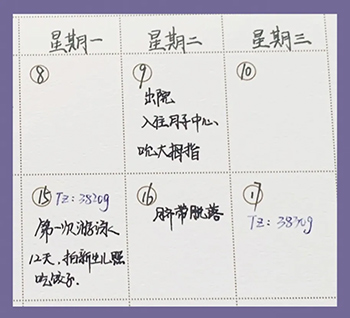 星期一 星期二 星期三
⑧ ⑨ ⑩
出院
入住月子中心、
吮大拇指
⑮ TZ: 3820g
第一次游泳
12天.拍新生儿照
吃饺子.
⑯
脐带脱落
⑰
TZ: 3830g